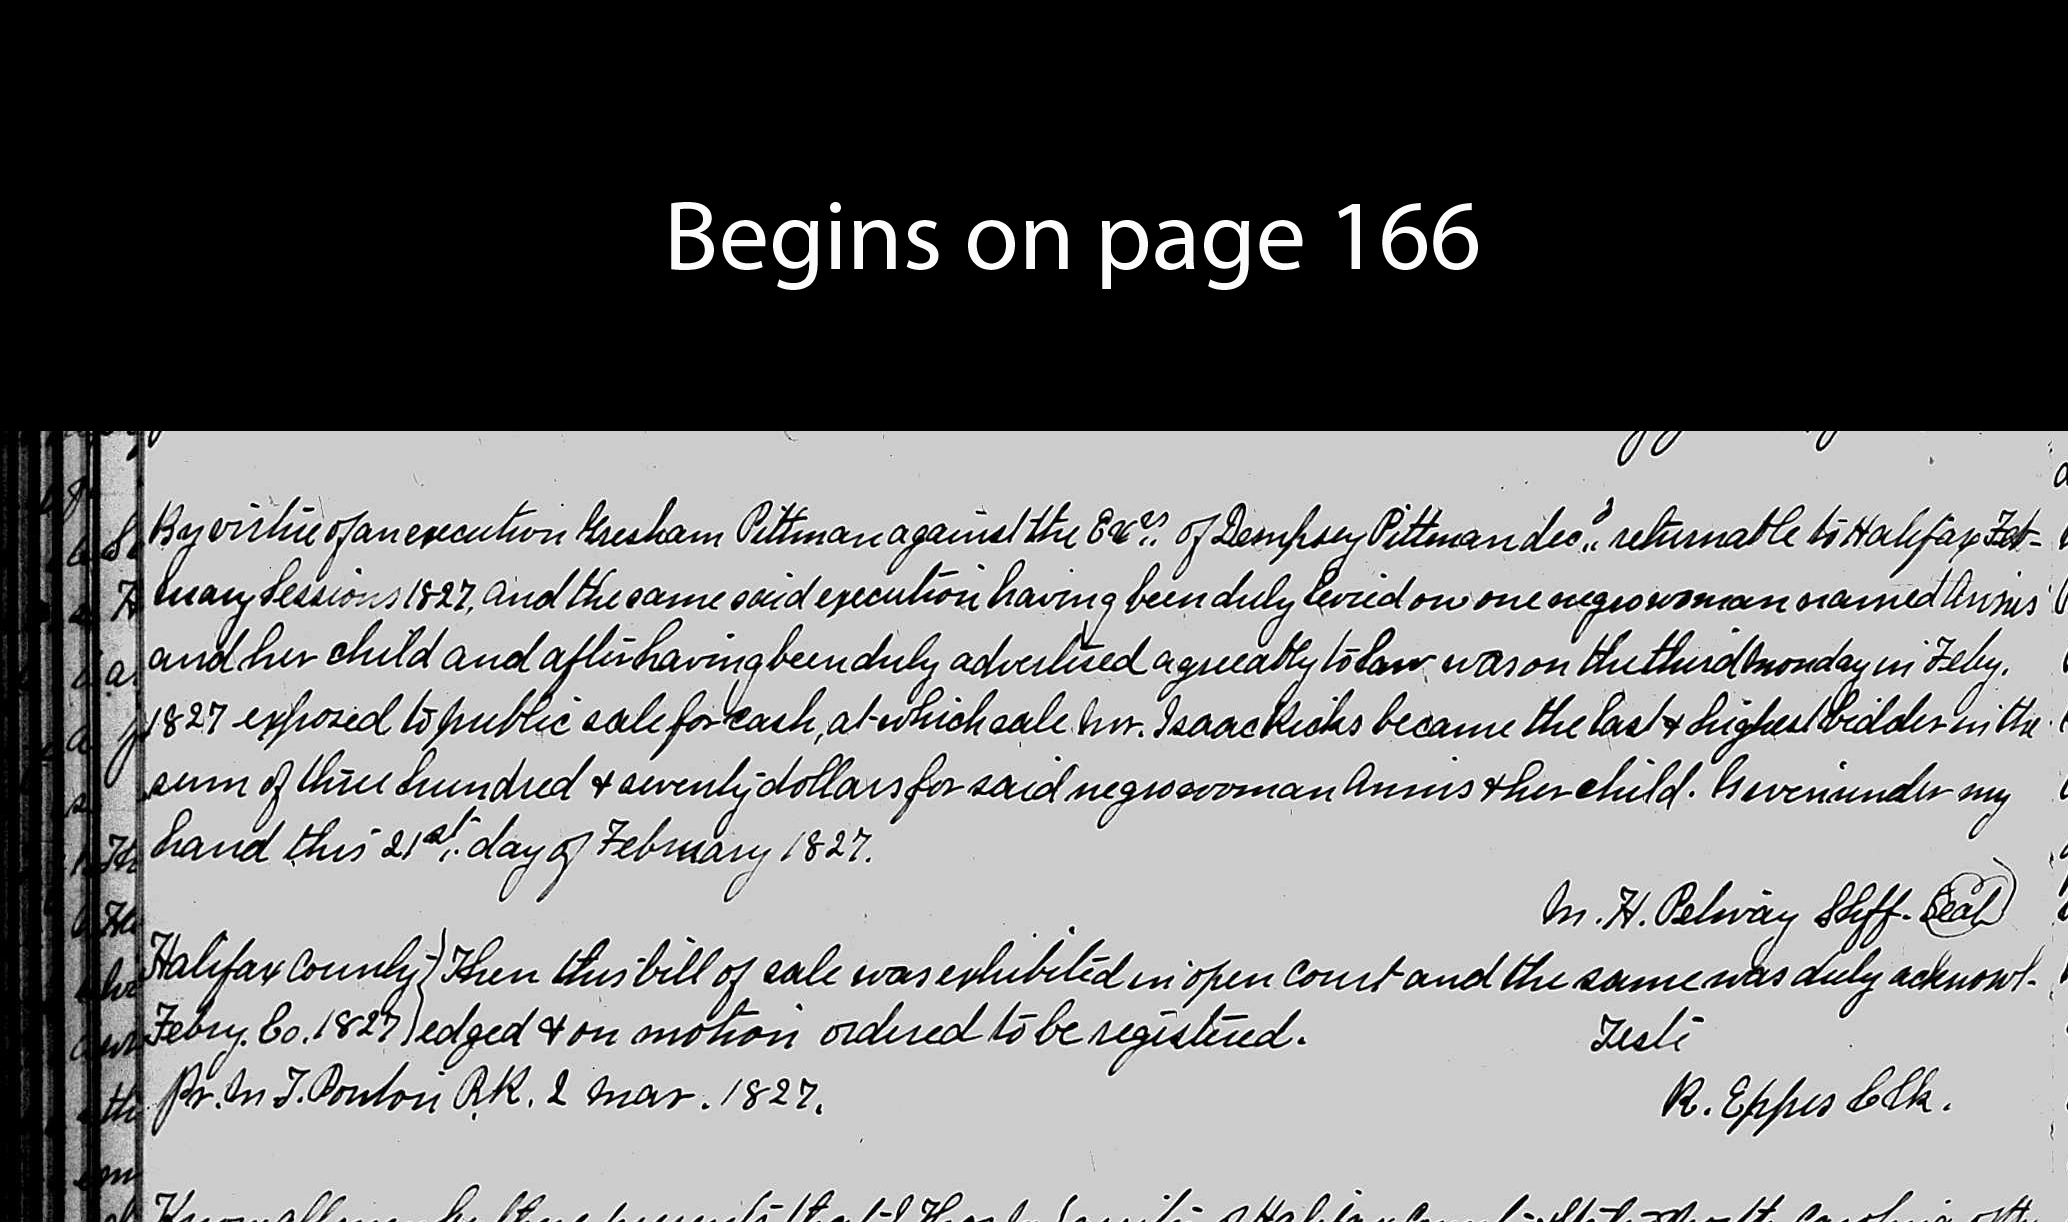 Begins on page 166
By virtue of an execution Gresham Pittman against the Exrs. of Dempsey Pittman decd. returnable to Halifax Feb-
ruary Sessions 1827, and the same said execution having been duly levied on one negro woman named Annis
and her child and after having been duly advertised agreeably to law was on the third Monday in Feby.
1827 exposed to public sale for cash, at which sale Mr. Isaac Ricks became the last & highest bidder in the
sum of three hundred & seventy dollars for said negro woman Annis & her child. Given under my
hand this 21st. day of February 1827.
M. H. Petway Shff. Seal
Halifax County } Then this bill of sale was exhibited in open Court and the same was duly acknowl-
Febry. Co. 1827 } edged & on motion ordered to be registered. Teste
Pr. M T. Ponton P.R. 2 Mar. 1827. R. Eppes Clk.
Know all men by these presents that I